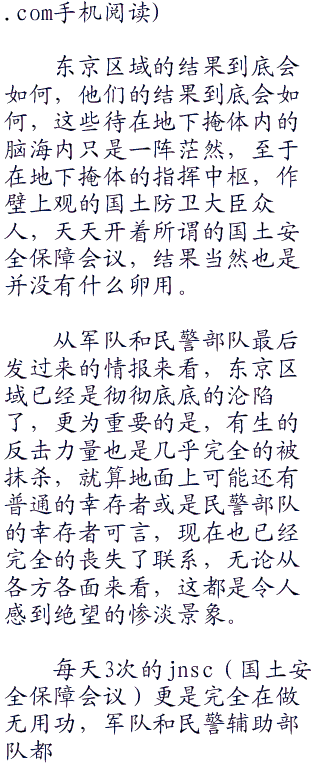 .com手机阅读)
东京区域的结果到底会
如何，他们的结果到底会如
何，这些待在地下掩体内的
脑海内只是一阵茫然，至于
在地下掩体的指挥中枢，作
壁上观的国土防卫大臣众
人，天天开着所谓的国土安
全保障会议，结果当然也是
并没有什么卵用。
从军队和民警部队最后
发过来的情报来看，东京区
域已经是彻彻底底的沦陷
了，更为重要的是，有生的
反击力量也是几乎完全的被
抹杀，就算地面上可能还有
普通的幸存者或是民警部队
的幸存者可言，现在也已经
完全的丧失了联系，无论从
各方各面来看，这都是令人
感到绝望的惨淡景象。
每天3次的jnsc（国土安
全保障会议）更是完全在做
无用功，军队和民警辅助部
队都